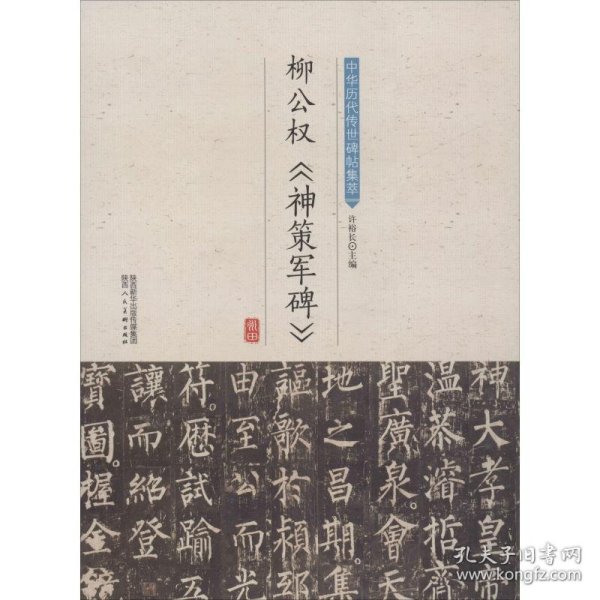 中华历代传世碑帖集萃
许裕长⊙主编
柳公权《神策军碑》
陕西新华出版传媒集团
陕西人民美术出版社
神大孝皇帝
温恭濬哲齊
聖廣泉。會天
地之昌期。集
謳歌於潁邸
由至公而光
符。歴試踰五
讓而紹登
寶圖。握金鏡
孔夫子旧书网
www.kongfz.com